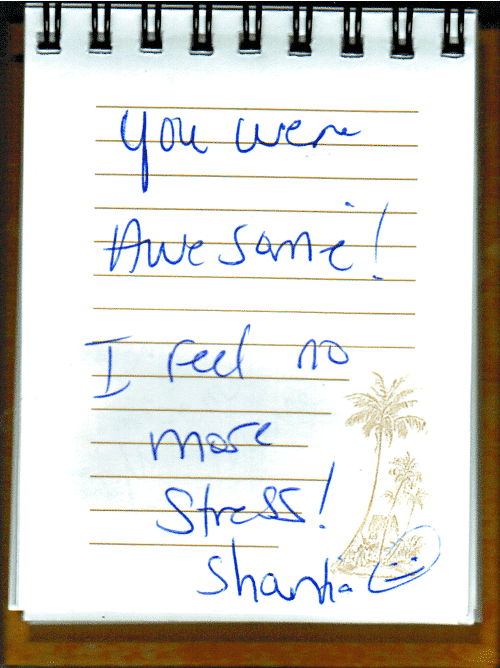 You were
Awesome!
I feel no
more
Stress!